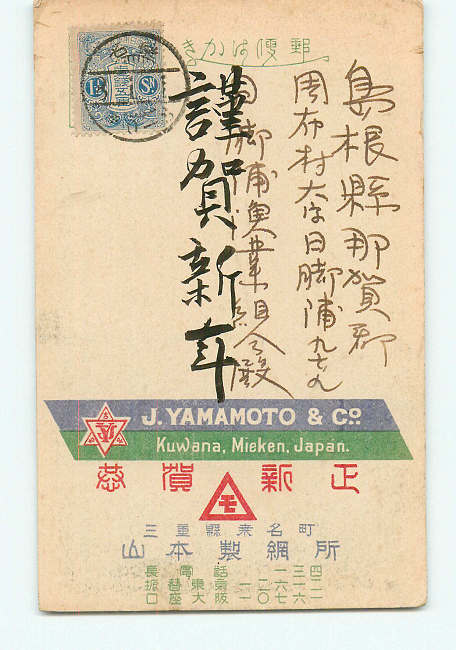 郵便はかき
島根縣那賀郡
周布村大字日脚浦九七九
日脚浦漁業組合殿
謹賀新年
1½ Sn
J. YAMAMOTO & Cº.
Kuwana, Mieken, Japan.
恭賀新正
三重縣桑名町
山本製網所
電話
長
振替
口座
東京
大阪